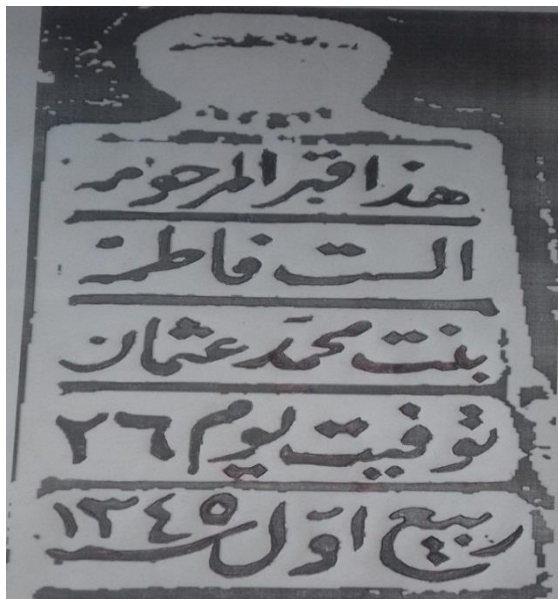 هذا قبر المرحومه
الست فاطمة
بنت محمد عثمان
توفيت يوم ٢٦
ربيع اوّل ١٣٤٥